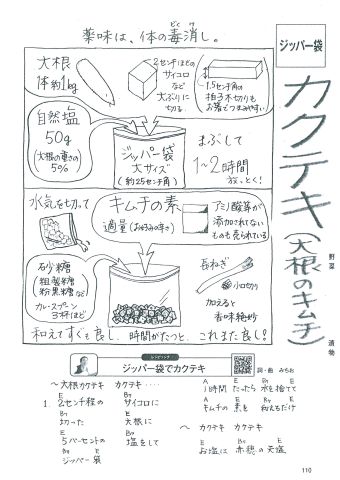 薬味は、体の毒消し。
どくけ
ジッパー袋
カクテキ(大根のキムチ)
野菜
漬物
大根
1体約1kg
2センチほどの
サイコロ
など
大ぶりに
切る
1.5センチ角の
拍子木切りも
お箸でつまみやすい
自然塩
50g
(大根の重さの
5%)
ジッパー袋
大サイズ
(約25センチ角)
まぶして
1~2時間
放っとく!
水気を切って
キムチの素
適量(お好みの辛さ)
アミノ酸等が
添加されてない
ものも売られている
砂糖
粗製糖
粉黒糖など
カレースプーン
3杯ほど
長ねぎ
小口切り
加えると
香味絶妙
和えてすぐも良し、1時間がたつと、これまた良し!
レシピソング
ジッパー袋でカクテキ
詞・曲 みちお
~大根カクテキ カクテキ・・・・
1. 2センチ程の サイコロに
E B7
切った 大根に
B7 E
5パーセントの 塩をして
E B7
ジッパー袋
B7 E
1時間 たったら 水を捨てて
A E B7 E
キムチの 素を 和えるだけ
A E B7 E
~ カクテキ カクテキ
お塩は 赤穂の 天塩
E B7 E
110